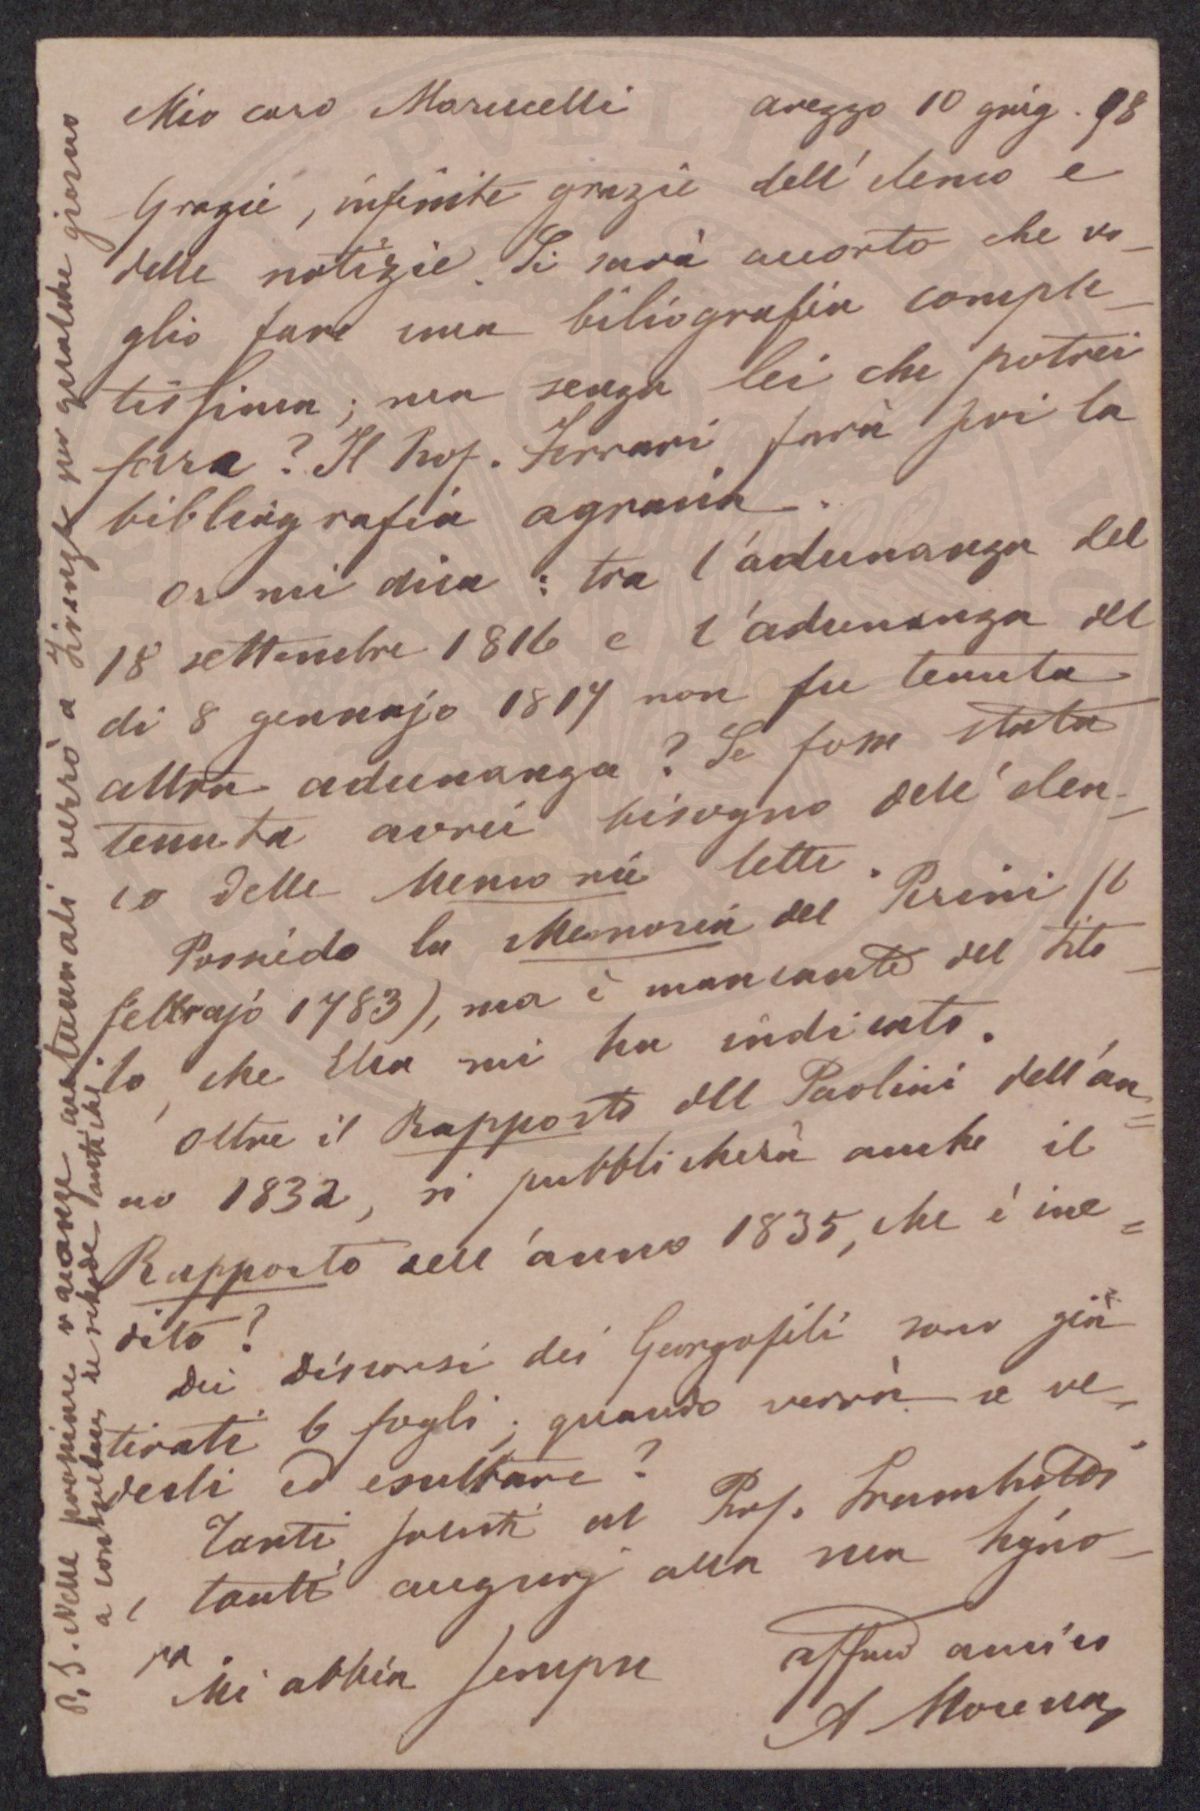 Mio caro Marucelli arezzo 10 giug. 98
Grazie, infinite grazie dell'elenco e
delle notizie. Si sarà accorto che vo-
glio fare una biliografia comple-
tissima; ma senza lei che potrei
fare? Il Prof. Ferrari farà poi la
bibliografia agraria.
Or mi dica: tra l'adunanza del
18 settembre 1816 e l'adunanza del
di 8 gennajo 1817 non fu tenuta
altra adunanza? Se fosse stata
tenuta avrei bisogno dell'elen-
co delle Memorie lette.
Possiedo la Memoria del Perini (6
febbrajo 1783), ma è mancante del tito-
lo, che Ella mi ha indicato.
Oltre il Rapporto del Paolini dell'an=
no 1832, si pubblicherà anche il
Rapporto dell'anno 1835, che è ine=
dito?
Dei Discorsi dei Georgofili sono già
tirati 6 fogli; quando verrà a ve-
derli ed esultare?
Tanti saluti al Prof.
e tanti augurj alla sua Signo-
ra
Mi abbia sempre affmo amico
A Morena
P.S. Nelle prossime vacanze autunnali verrò a Firenze per qualche giorno
a consultare le schede antichi.